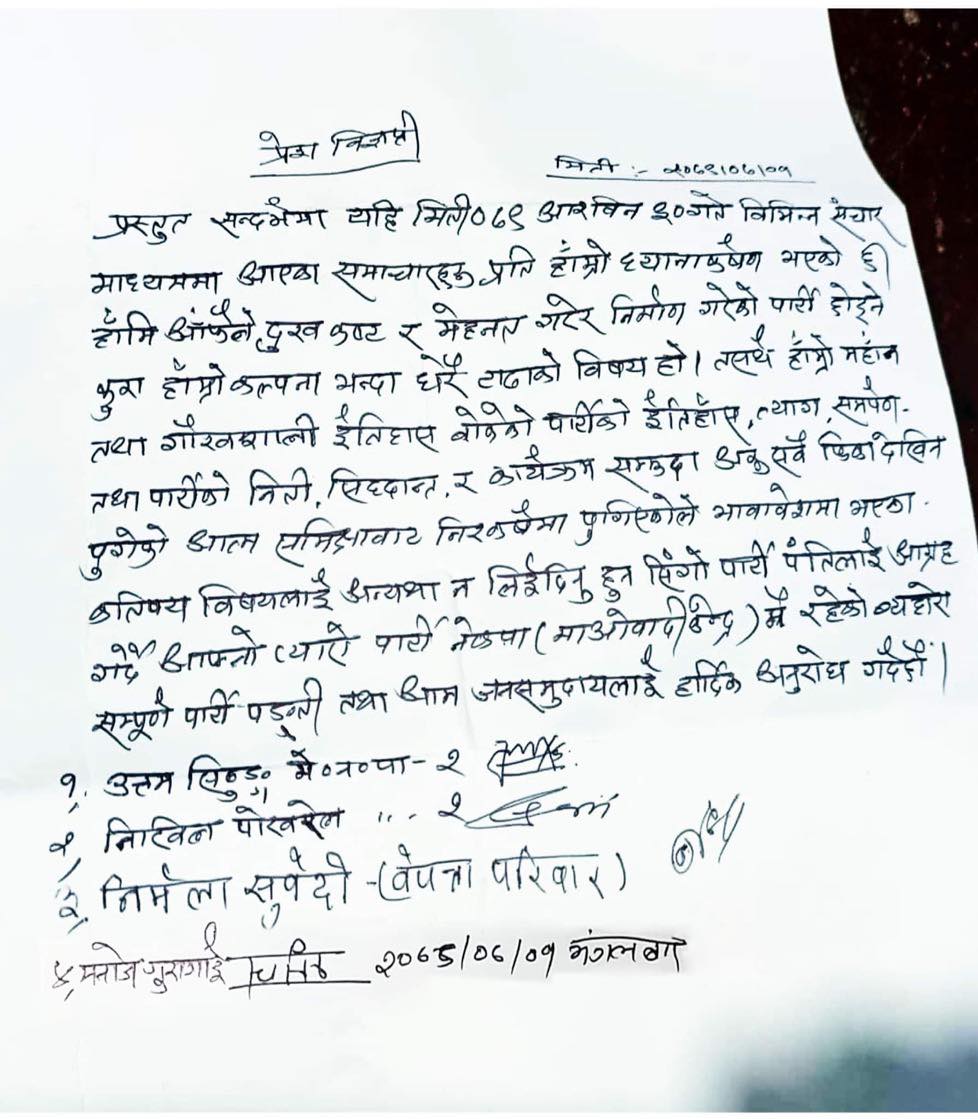 प्रेस विज्ञप्ती
मिती :- २०७९/०७/०१
प्रस्तुत सन्दर्भमा यहि मिती०७९ आश्विन ३०गते विभिन्न संचार
माध्यममा आएका समाचारहरु प्रति हाँम्रो ध्यानाकर्षण भएको छ।
हाँमि आँफैले दुख कष्ट र मेहनत गरेर निर्माण गरेको पार्टी छोड्ने
कुरा हाँम्रो कल्पना भन्दा धेरै टाढाको विषय हो। तसर्थ हाँम्रो महाँन
तथा गौरवशाली ईतिहास बोकेको पार्टीको ईतिहाँस, त्याग, समर्पण
तथा पार्टीको निती, सिद्दान्त, र कार्यक्रम सम्झदा
पुगेको आत्म समिक्षावाट निस्कर्षमा पुगिएकोले भावावेशमा भएका
कतिपय विषयलाई अन्यथा न लिईदिनु हुन सिंगो पार्टी पंतिलाई आग्रह
गर्दै आफ्नो प्यारो पार्टी नेकपा (माओवादी केन्द्र) मै रहेको व्यहोरा
सम्पूर्ण पार्टी पङ्ती तथा आम जनसमुदायलाई हार्दिक अनुरोध गर्दछौं।
१. उत्तम सिन्डुङ्ग मे०न०पा- २
२, निखिल पोखरेल ... २
३. निर्मला सुवेदी -(वेपत्ता परिवार)
४, मनोज गुरागाई २०७९/०७/०१ मंगलबार